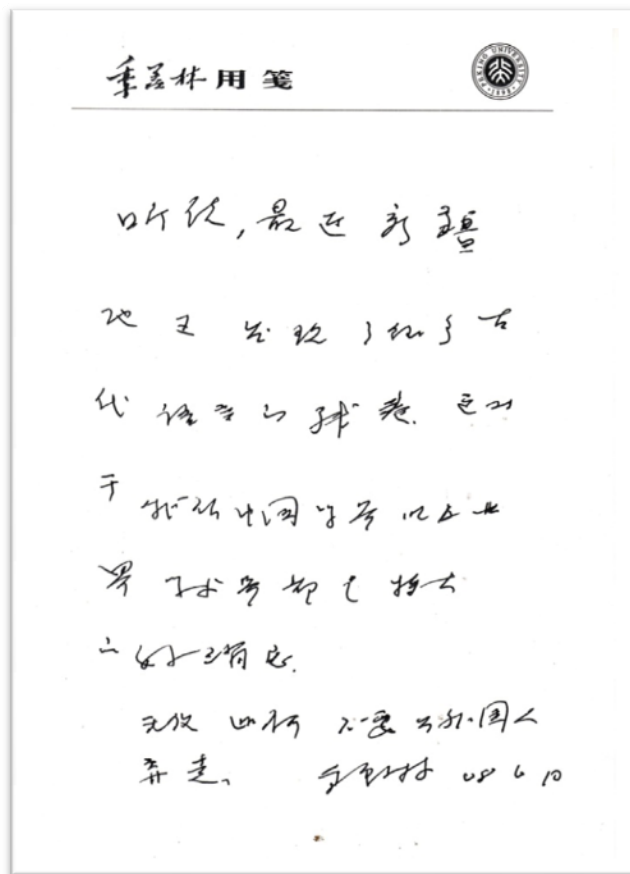 季羡林用笺
PEKING UNIVERSITY · 1898 ·
听说,最近新疆
地区发现了很多古
代语言的残卷.这对
于我们中国学者以及世
界学者都是特大
的好消息.
无论如何不要让外国人
弄走。 季羡林 08 6 10